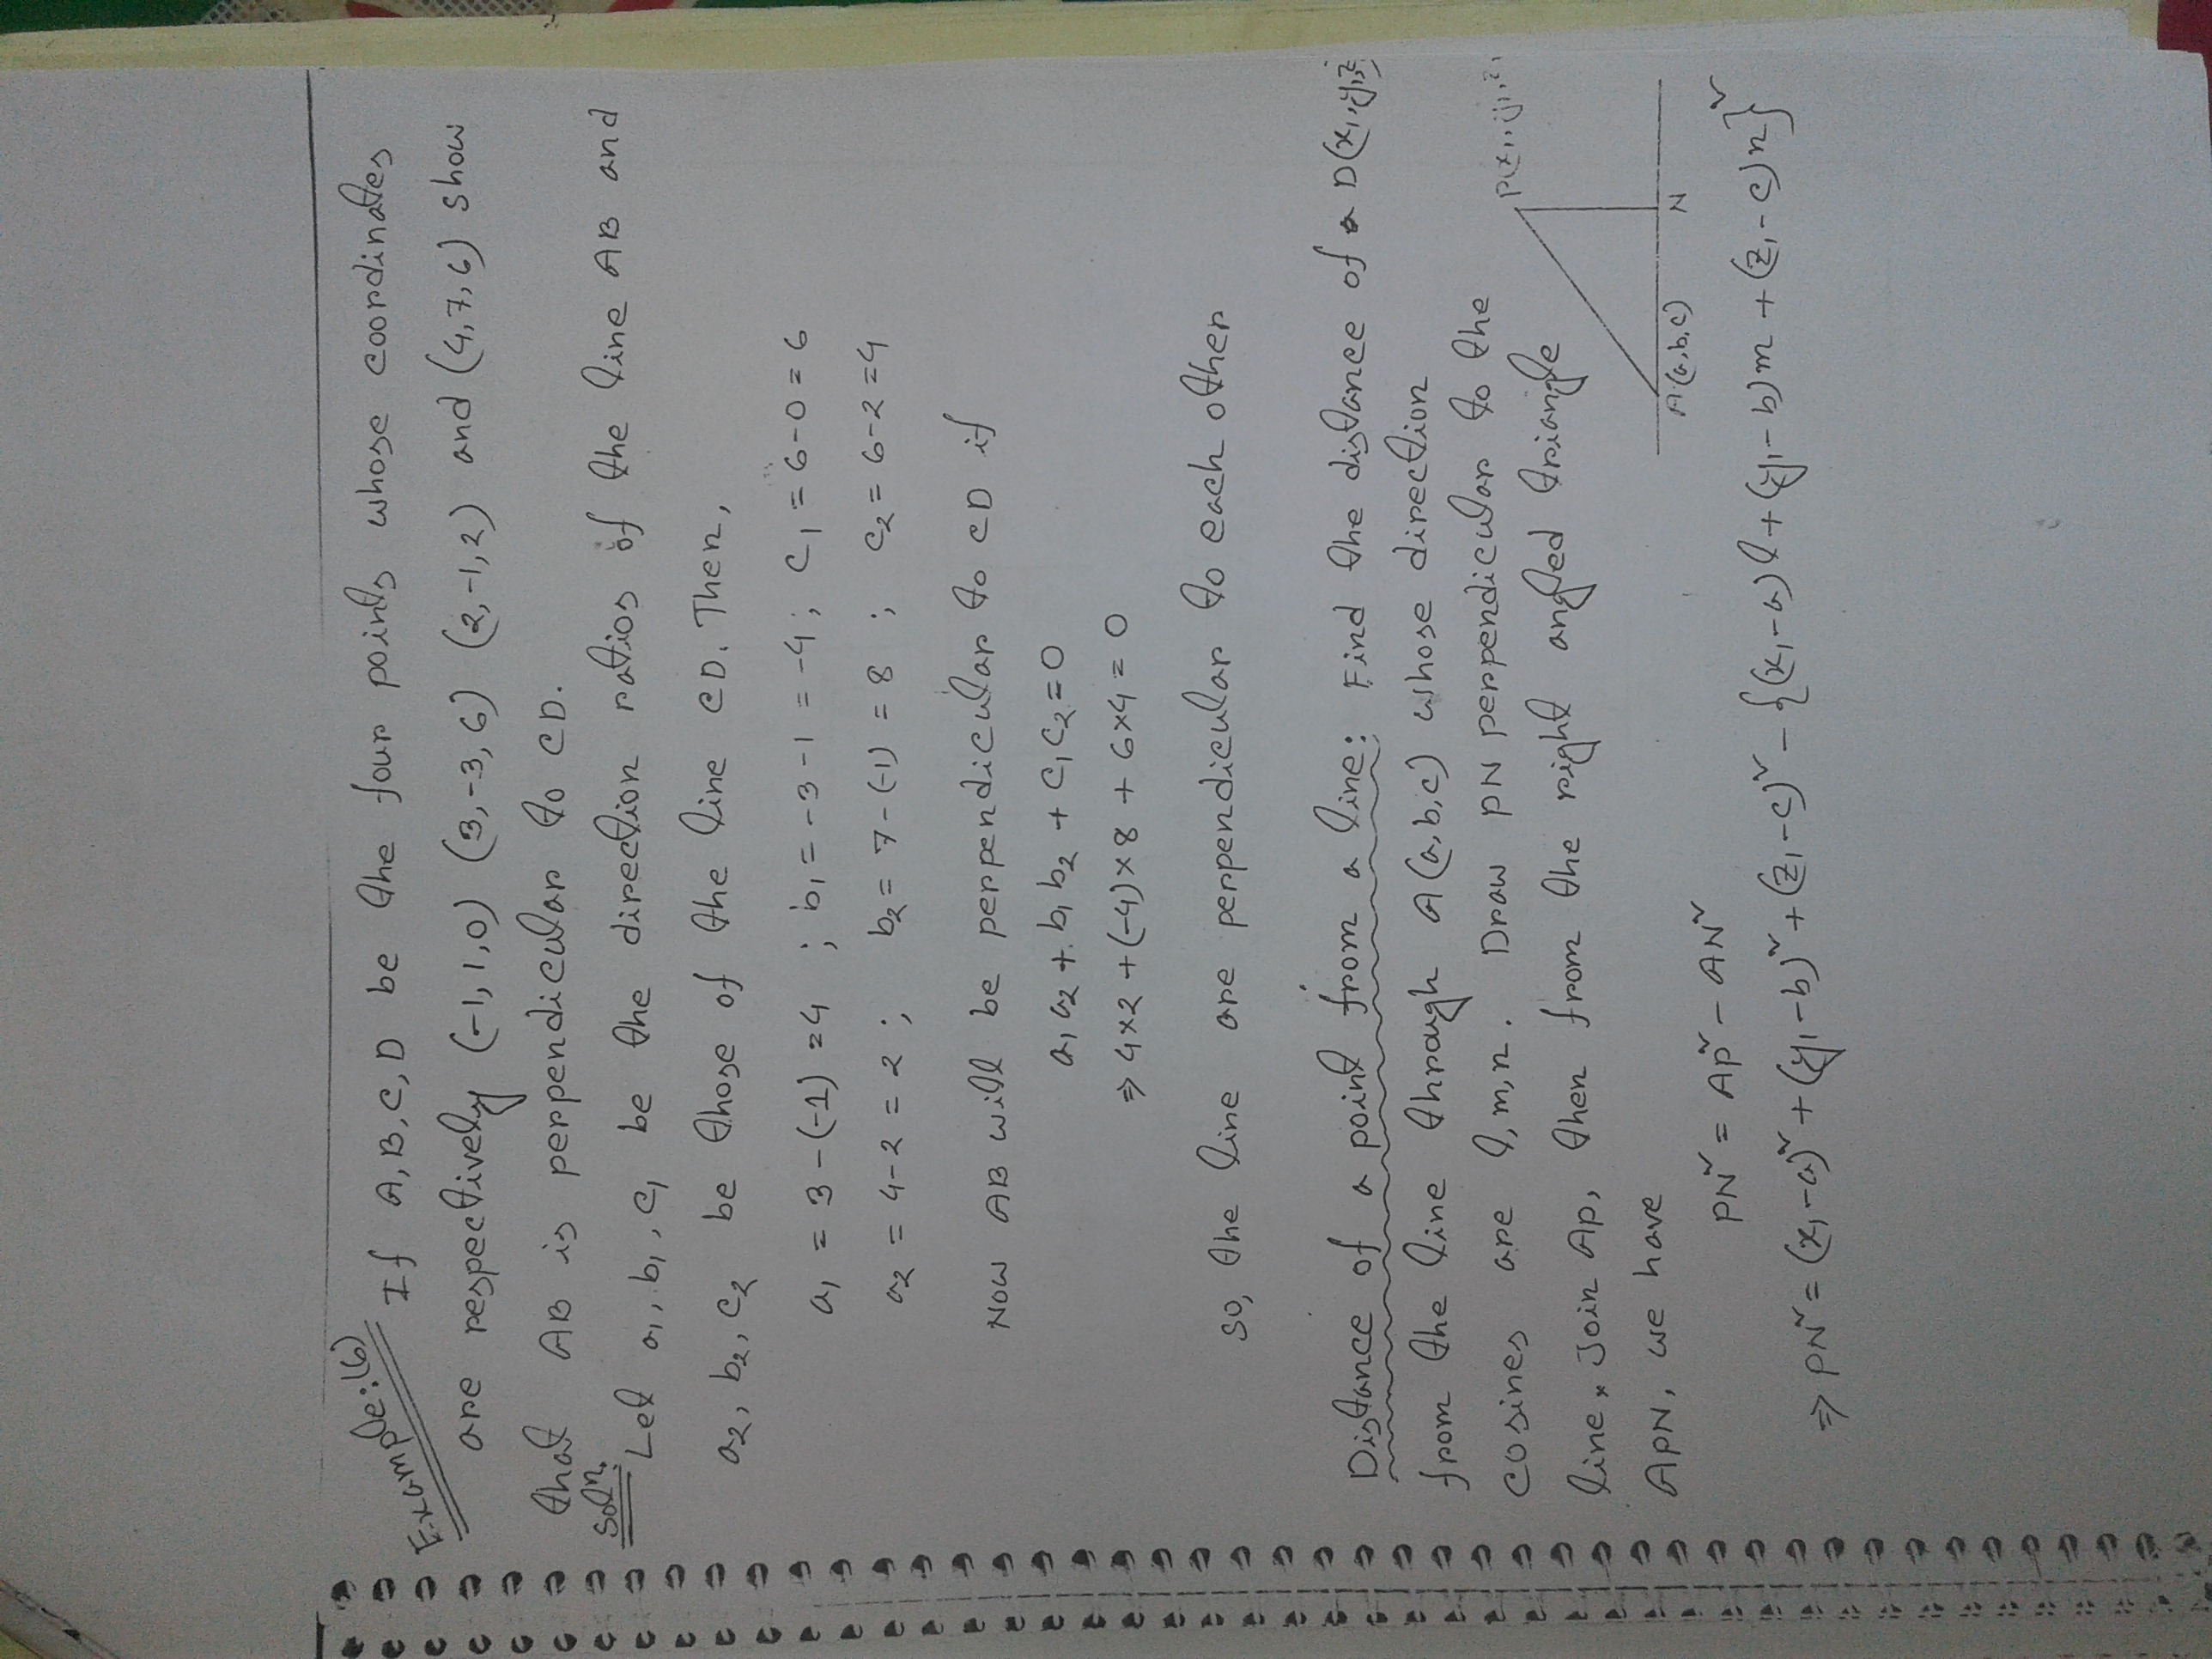 Example:(6)
If A, B, C, D be the four points whose coordinates
are respectively (-1, 1, 0) (3, -3, 6) (2, -1, 2) and (4, 7, 6) show
that AB is perpendicular to CD.
Soln:
Let a₁, b₁, c₁ be the direction ratios of the line AB and
a₂, b₂, c₂ be those of the line CD. Then,
a₁ = 3-(-1) = 4 ; b₁ = -3-1 = -4 ; c₁ = 6-0 = 6
a₂ = 4-2 = 2 ; b₂ = 7-(-1) = 8 ; c₂ = 6-2 = 4
Now AB will be perpendicular to CD if
a₁a₂ + b₁b₂ + c₁c₂ = 0
⇒ 4×2 + (-4)×8 + 6×4 = 0
So, the line are perpendicular to each other
Distance of a point from a line: Find the distance of a D(x₁, y₁, z
from the line through A(a, b, c) whose direction
cosines are l, m, n. Draw PN perpendicular to the
line. Join AP, then from the right angled triangle
APN, we have
P(x₁, y₁, z₁
A(a, b, c) N
PN² = AP² - AN²
⇒ PN² = (x₁-a)² + (y₁-b)² + (z₁-c)² - {(x₁-a)l + (y₁-b)m + (z₁-c)n}²